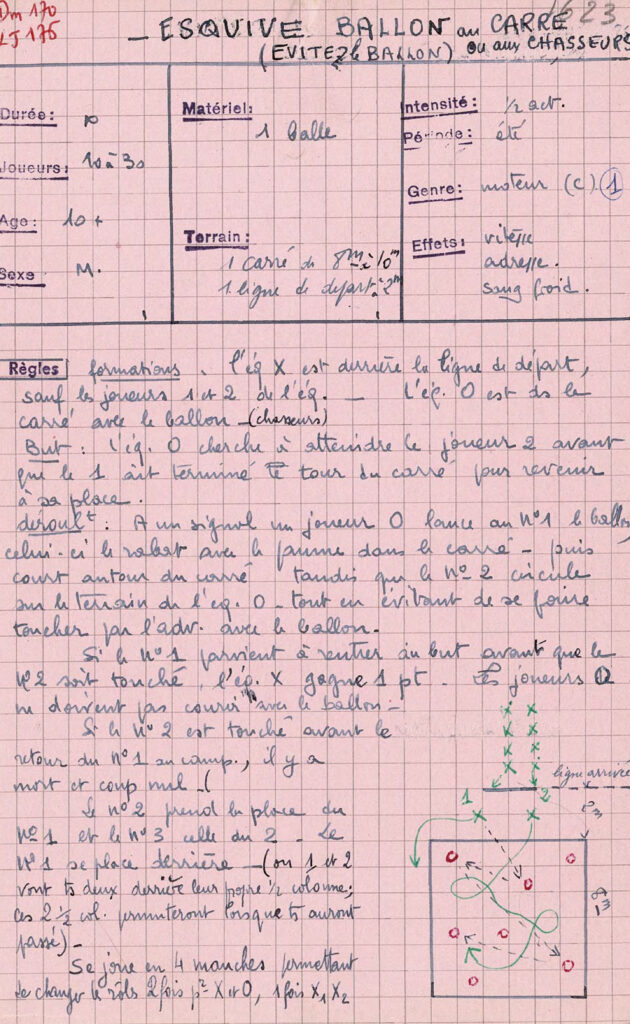 Dm 170
LJ 176
1623
- ESQUIVE BALLON au CARRÉ
(EVITEZ le BALLON) ou aux CHASSEURS
Durée: p
Joueurs: 10 à 30
Age: 10 +
Sexe M.
Matériel:
1 balle
Terrain:
1 carré de 8m à 10m
1 ligne de départ à 2m
Intensité: ½ act.
Période: été
Genre: moteur (C) 1
Effets: vitesse
adresse.
sang froid.
Règles formations. l'éq X est derrière la ligne de départ,
sauf les joueurs 1 et 2 de l'éq. _ L'éq. O est ds le
carré avec le ballon - (chasseurs)
But: L'éq. O cherche à atteindre le joueur 2 avant
que le 1 ait terminé le tour du carré pour revenir
à sa place.
déroult: A un signal un joueur O lance au n°1 le ballon,
celui-ci le rabat avec la paume dans le carré - puis
court autour du carré tandis que le n°2 circule
sur le terrain de l'eq. O - tout en évitant de se faire
toucher par l'adv. avec le ballon.
Si le N°1 parvient à rentrer au but avant que le
N°2 soit touché, l'éq. X gagne 1 pt. Les joueurs
ne doivent pas courir avec le ballon -
Si le N°2 est touché avant le
retour du N°1 au camp, il y a
mort et coup nul - (
Le n°2 prend la place du
N°1 et le N°3 celle du 2 - Le
N°1 se place derrière - (ou 1 et 2
vont ts deux derrière leur propre ½ colonne;
ces 2 ½ col. permuteront lorsque ts auront
passé) -
Se joue en 4 manches permettant
de changer les rôles 2 fois pr X et O, 1 fois X1 X2
X X
X X
X X
X X
ligne arrivée
1 2
X X
2m
8m